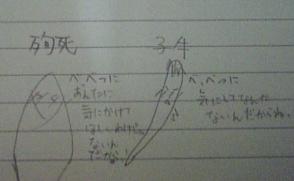 殉死
べ、べつに
あんたに
気にかけて
ほしいわけじゃ
ないん
だから!
子牛
べ、べつに
気にしてなんか
ないんだからね